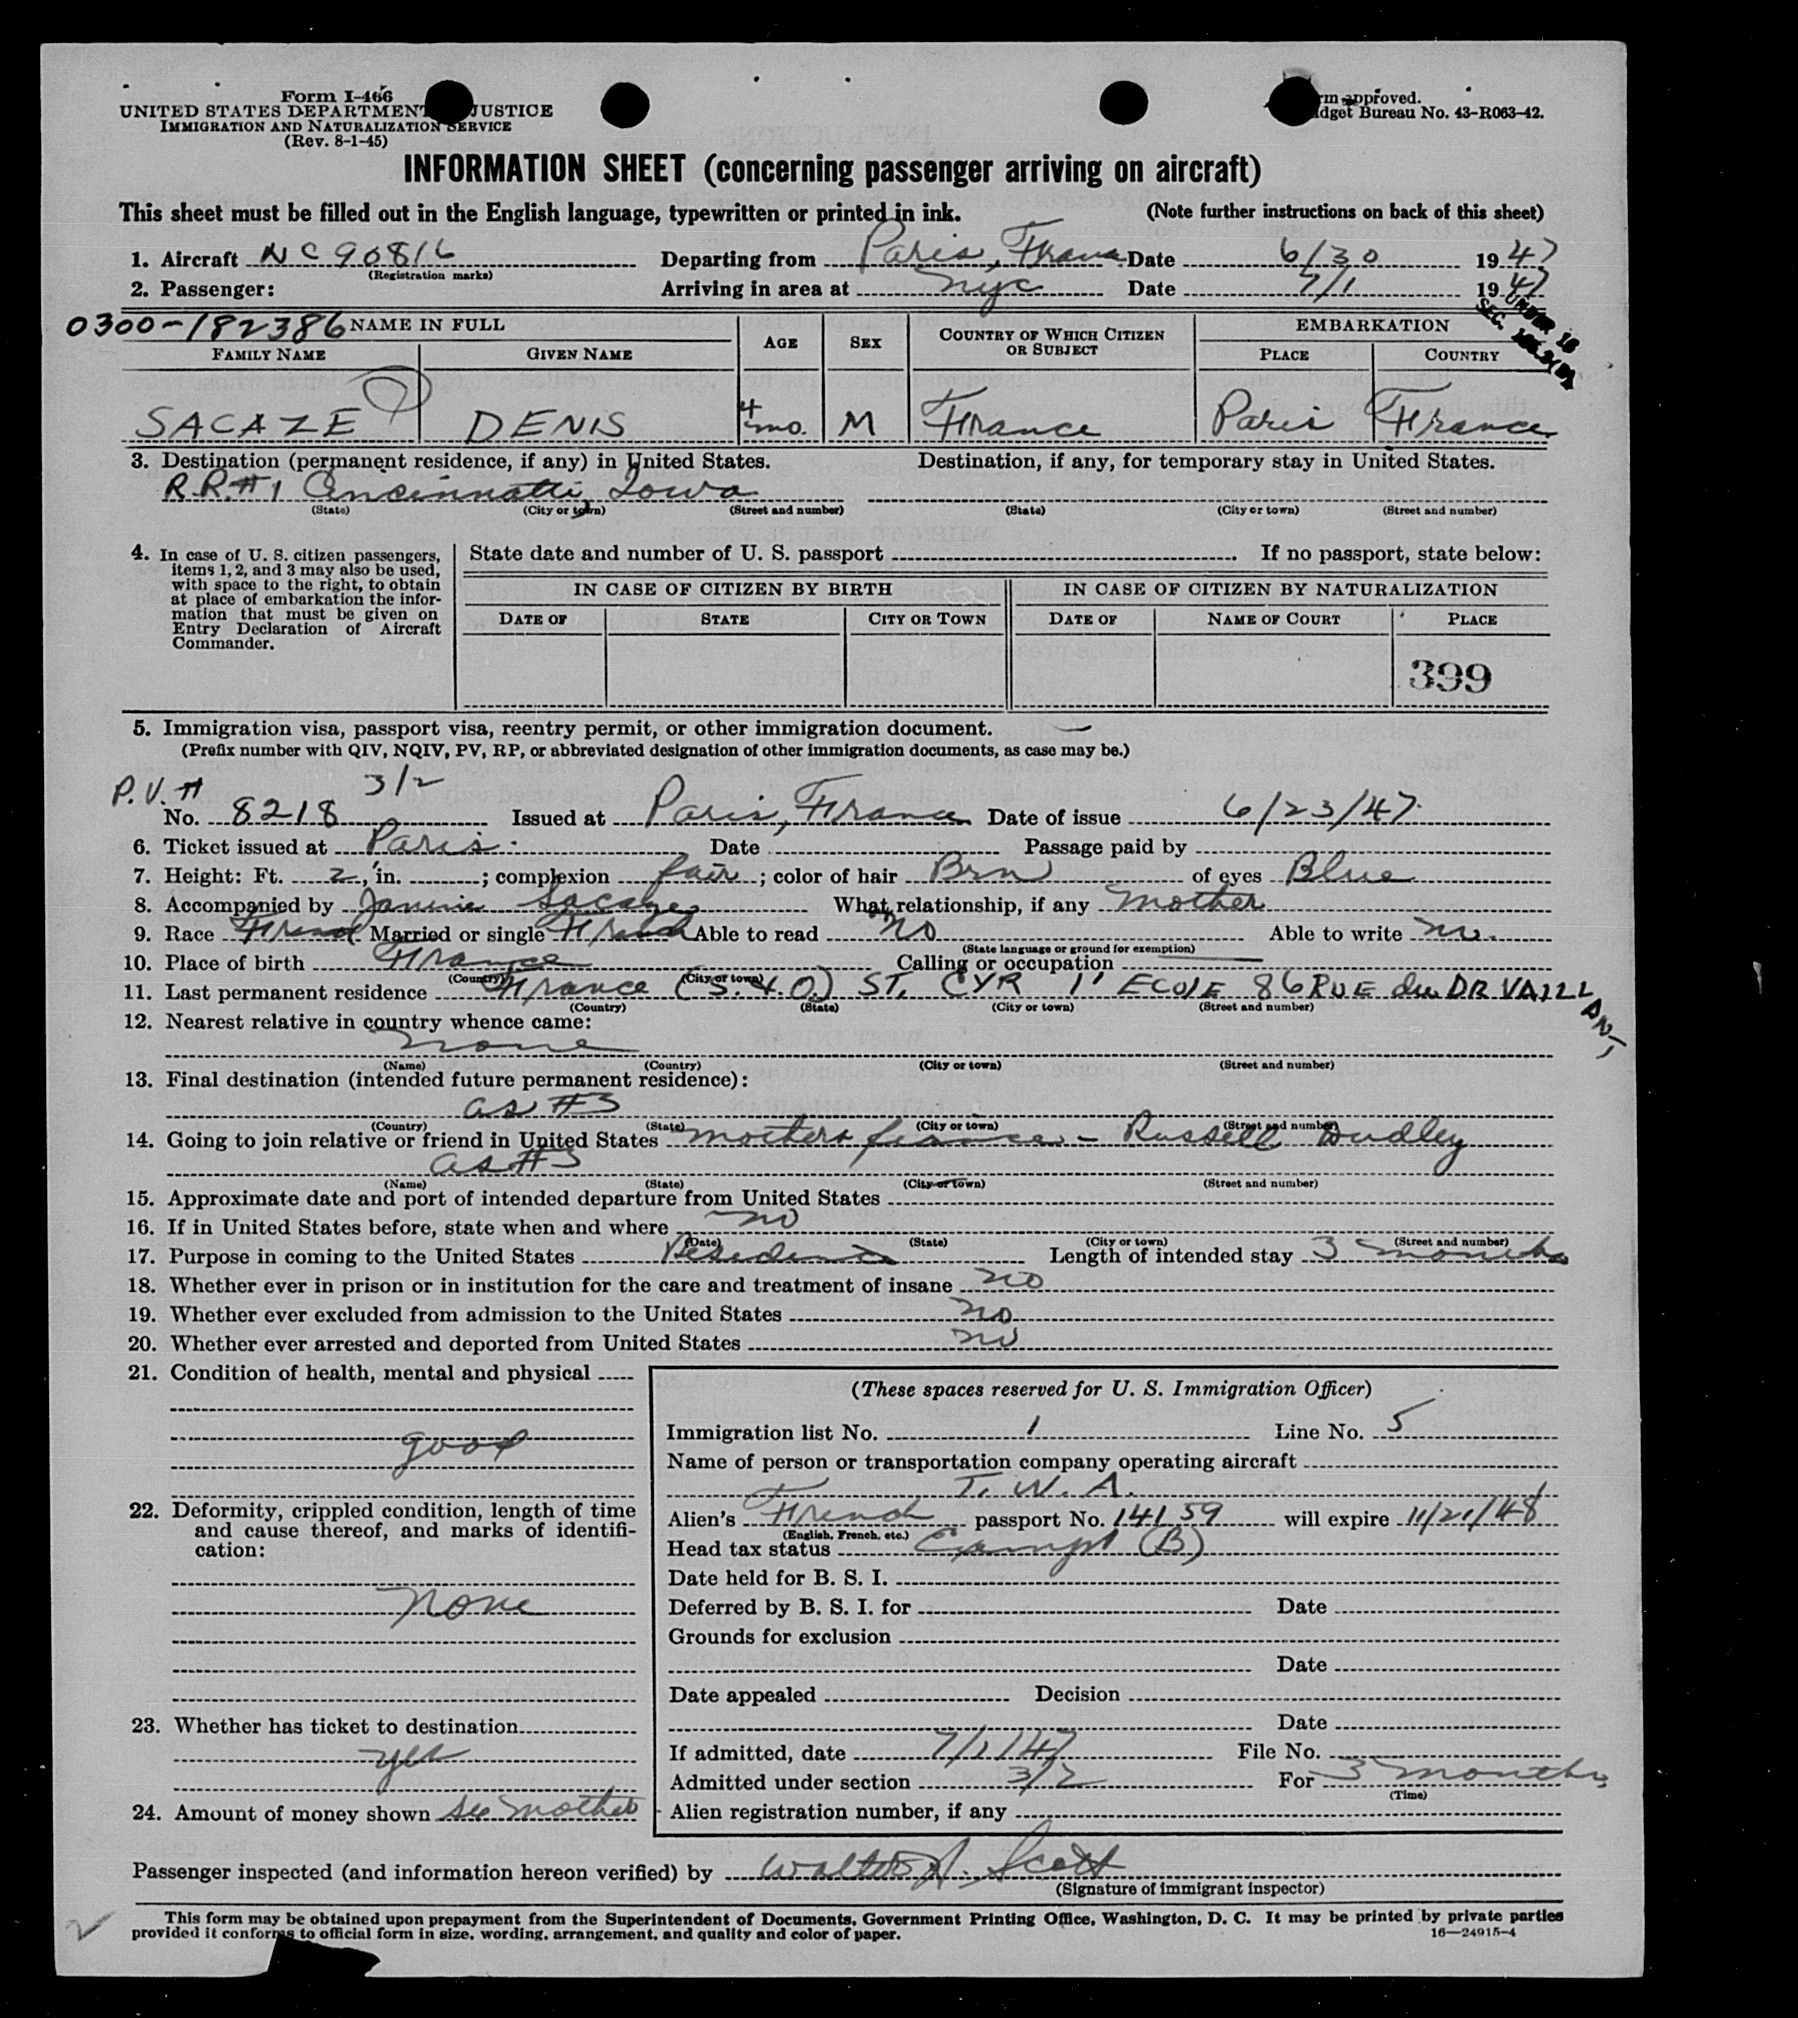 Form I-466
UNITED STATES DEPARTMENT JUSTICE
IMMIGRATION AND NATURALIZATION SERVICE
(Rev. 8-1-45)
rm approved.
dget Bureau No. 43-R063-42.
INFORMATION SHEET (concerning passenger arriving on aircraft)
This sheet must be filled out in the English language, typewritten or printed in ink. (Note further instructions on back of this sheet)
1. Aircraft NC90816 Departing from Paris, France Date 6/30 1947
(Registration marks)
2. Passenger: Arriving in area at nyc Date 7/1 1947
UNDER 16
SEC.
0300-182386 NAME IN FULL AGE SEX COUNTRY OF WHICH CITIZEN OR SUBJECT EMBARKATION
FAMILY NAME GIVEN NAME PLACE COUNTRY
SACAZE DENIS 4 mo. M France Paris France
3. Destination (permanent residence, if any) in United States. Destination, if any, for temporary stay in United States.
R.R.#1 Cincinnatti, Iowa
(State) (City or town) (Street and number) (State) (City or town) (Street and number)
4. In case of U. S. citizen passengers, items 1, 2, and 3 may also be used, with space to the right, to obtain at place of embarkation the information that must be given on Entry Declaration of Aircraft Commander.
State date and number of U. S. passport . If no passport, state below:
IN CASE OF CITIZEN BY BIRTH IN CASE OF CITIZEN BY NATURALIZATION
DATE OF STATE CITY OR TOWN DATE OF NAME OF COURT PLACE
399
5. Immigration visa, passport visa, reentry permit, or other immigration document.
(Prefix number with QIV, NQIV, PV, RP, or abbreviated designation of other immigration documents, as case may be.)
P.V. # 3/2
No. 8218 Issued at Paris, France Date of issue 6/23/47
6. Ticket issued at Paris Date Passage paid by
7. Height: Ft. 2, in. ; complexion fair ; color of hair Brn of eyes Blue
8. Accompanied by Janine Sacaze What relationship, if any Mother
9. Race French Married or single French Able to read no Able to write no.
(State language or ground for exemption)
10. Place of birth France Calling or occupation
(Country) (City or town)
11. Last permanent residence France (S.&O.) ST. CYR l' ECOLE 86 RUE du DR VAILLANT
(Country) (State) (City or town) (Street and number)
12. Nearest relative in country whence came:
none
(Name) (Country) (City or town) (Street and number)
13. Final destination (intended future permanent residence):
as #3
(Country) (State) (City or town) (Street and number)
14. Going to join relative or friend in United States mothers fiance - Russell Dudley
as #3
(Name) (State) (City or town) (Street and number)
15. Approximate date and port of intended departure from United States
16. If in United States before, state when and where no
(Date) (State) (City or town) (Street and number)
17. Purpose in coming to the United States Residence Length of intended stay 3 months
18. Whether ever in prison or in institution for the care and treatment of insane no
19. Whether ever excluded from admission to the United States no
20. Whether ever arrested and deported from United States no
21. Condition of health, mental and physical
good
22. Deformity, crippled condition, length of time and cause thereof, and marks of identification:
none
23. Whether has ticket to destination
yes
24. Amount of money shown see mother
(These spaces reserved for U. S. Immigration Officer)
Immigration list No. 1 Line No. 5
Name of person or transportation company operating aircraft
T. W. A.
Alien's French passport No. 14159 will expire 11/21/48
(English, French, etc.)
Head tax status Exempt (B)
Date held for B. S. I.
Deferred by B. S. I. for Date
Grounds for exclusion
Date
Date appealed Decision
Date
If admitted, date 7/1/47 File No.
Admitted under section 3/2 For 3 months
(Time)
Alien registration number, if any
Passenger inspected (and information hereon verified) by Walter A. Scott
(Signature of immigrant inspector)
This form may be obtained upon prepayment from the Superintendent of Documents, Government Printing Office, Washington, D. C. It may be printed by private parties
provided it conforms to official form in size, wording, arrangement, and quality and color of paper.
16—24915-4